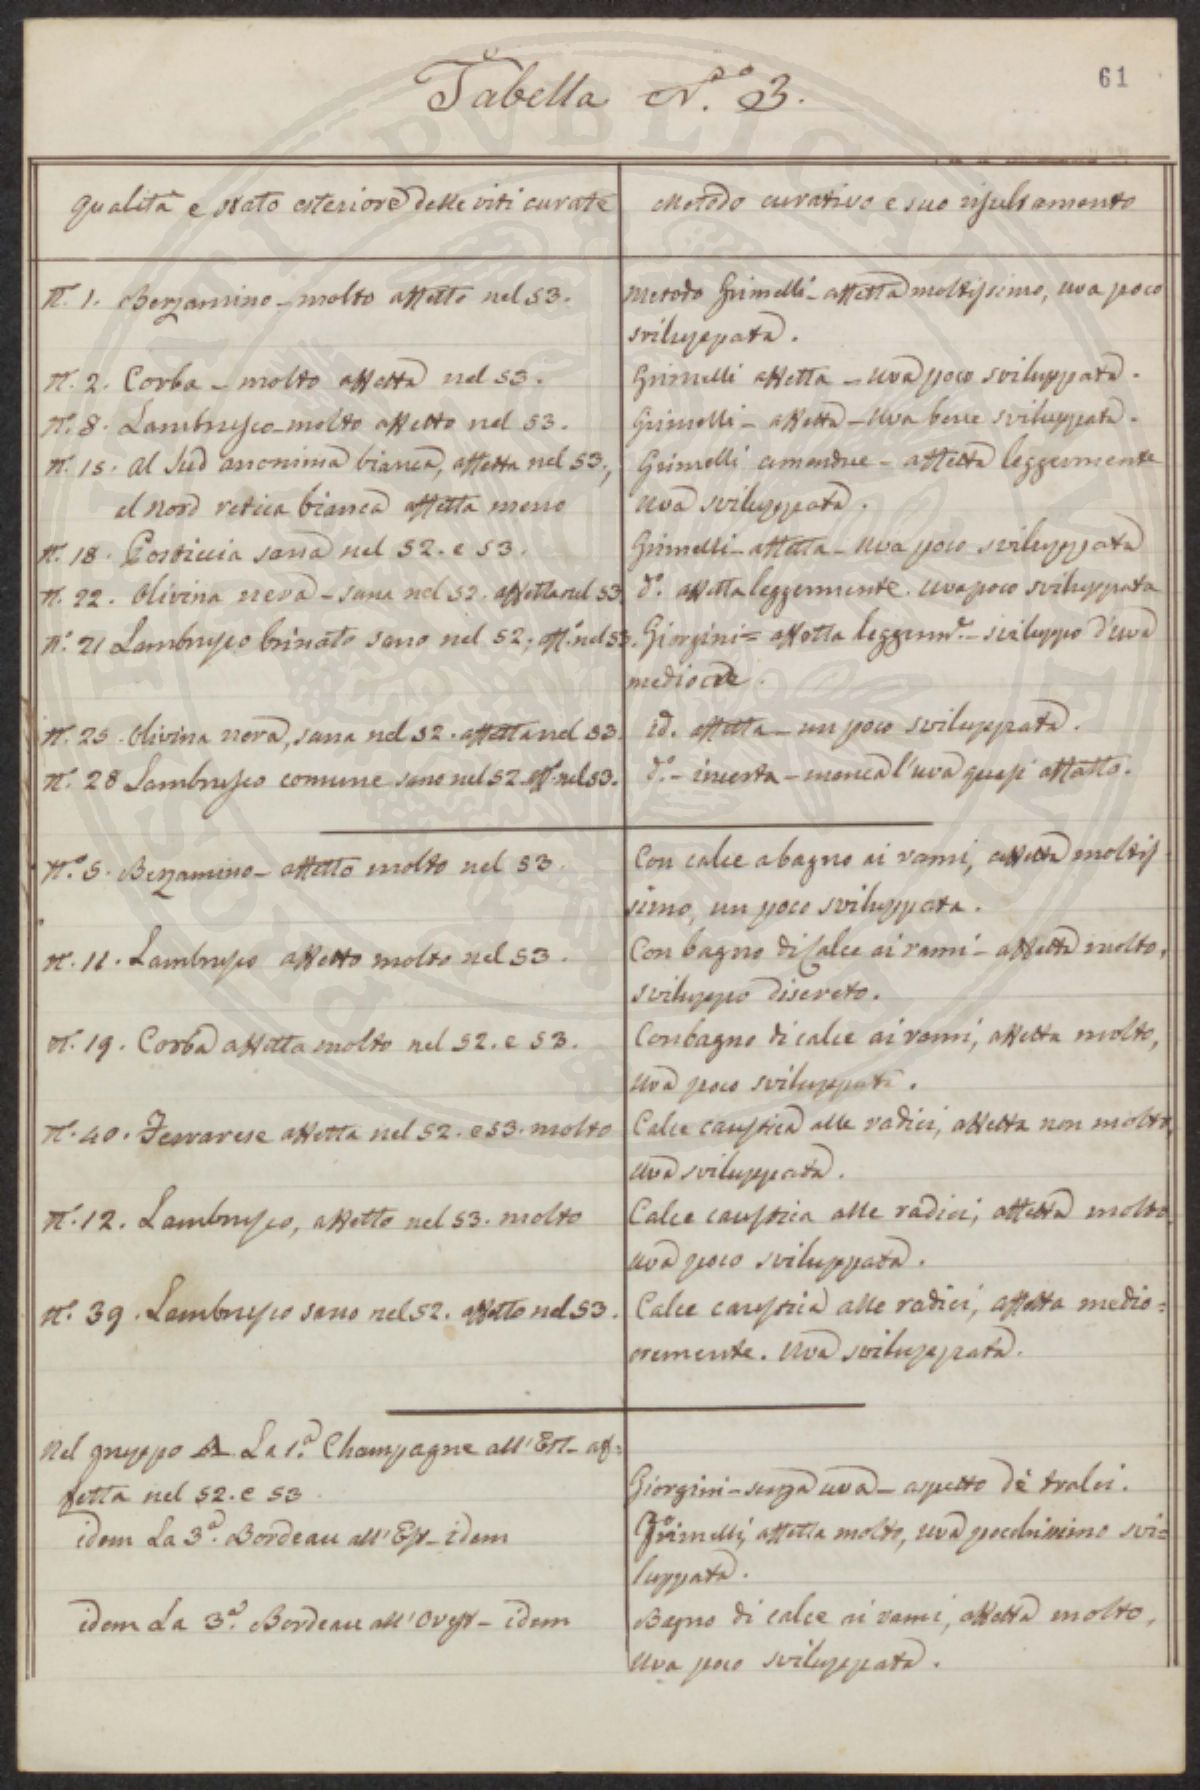 61
Tabella N.o 3.
Qualità e stato esteriore delle viti curate
Metodo curativo e suo risultamento
N. 1. Berzamino - molto affetto nel 53.
Metodo Grimelli - affetta moltissimo, uva poco
sviluppata.
N. 2. Corba - molto affetta nel 53.
Grimelli affetta - Uva poco sviluppata.
N. 8. Lambrusco - molto affetto nel 53.
Grimelli - affetta - Uva bene sviluppata.
N. 15. al Sud anonima bianca, affetta nel 53.,
Grimelli amendue - affetta leggermente
al Nord retica bianca affetta meno
Uva sviluppata.
N. 18. Posticcia sana nel 52. e 53.
Grimelli - affetta - Uva poco sviluppata
N. 22. Olivina nera - sana nel 52. affetta nel 53.
d.o affetta leggermente. Uva poco sviluppata
N.o 21 Lambrusco brinato sano nel 52; aff.o nel 53.
Giorgini = affetta leggerm.e - sviluppo d'uva
mediocre.
N. 25. Olivina nera, sana nel 52. affetta nel 53.
id. affetta - un poco sviluppata.
N. 28 Lambrusco comune sano nel 52. aff.o nel 53.
d.o - incerta - manca l'uva quasi affatto.
N.o 5. Berzamino - affetto molto nel 53.
Con calce a bagno ai rami, affetta moltis-
simo, un poco sviluppata.
N. 11. Lambrusco affetto molto nel 53.
Con bagno di Calce ai rami - affetta molto,
sviluppo discreto.
N. 19. Corba affetta molto nel 52. e 53.
Con bagno di calce ai rami, affetta molto,
uva poco sviluppata.
N. 40. Ferrarese affetta nel 52. e 53. molto
Calce caustica alle radici, affetta non molto,
uva sviluppata.
N. 12. Lambrusco, affetto nel 53. molto
Calce caustica alle radici, affetta molto
uva poco sviluppata.
N. 39. Lambrusco sano nel 52. affetto nel 53.
Calce caustica alle radici, affetta medio=
cremente. Uva sviluppata.
Nel gruppo A La 1.a Champagne all'Est - af=
fetta nel 52. e 53
Giorgini - senza uva - aspetto dè tralci.
idem La 3.a Bordeau all'Est - idem
Grimelli, affetta molto, uva pocchissimo svi=
luppata.
idem La 3.a Bordeau all'Ovest - idem
Bagno di calce ai rami, affetta molto,
Uva poco sviluppata.